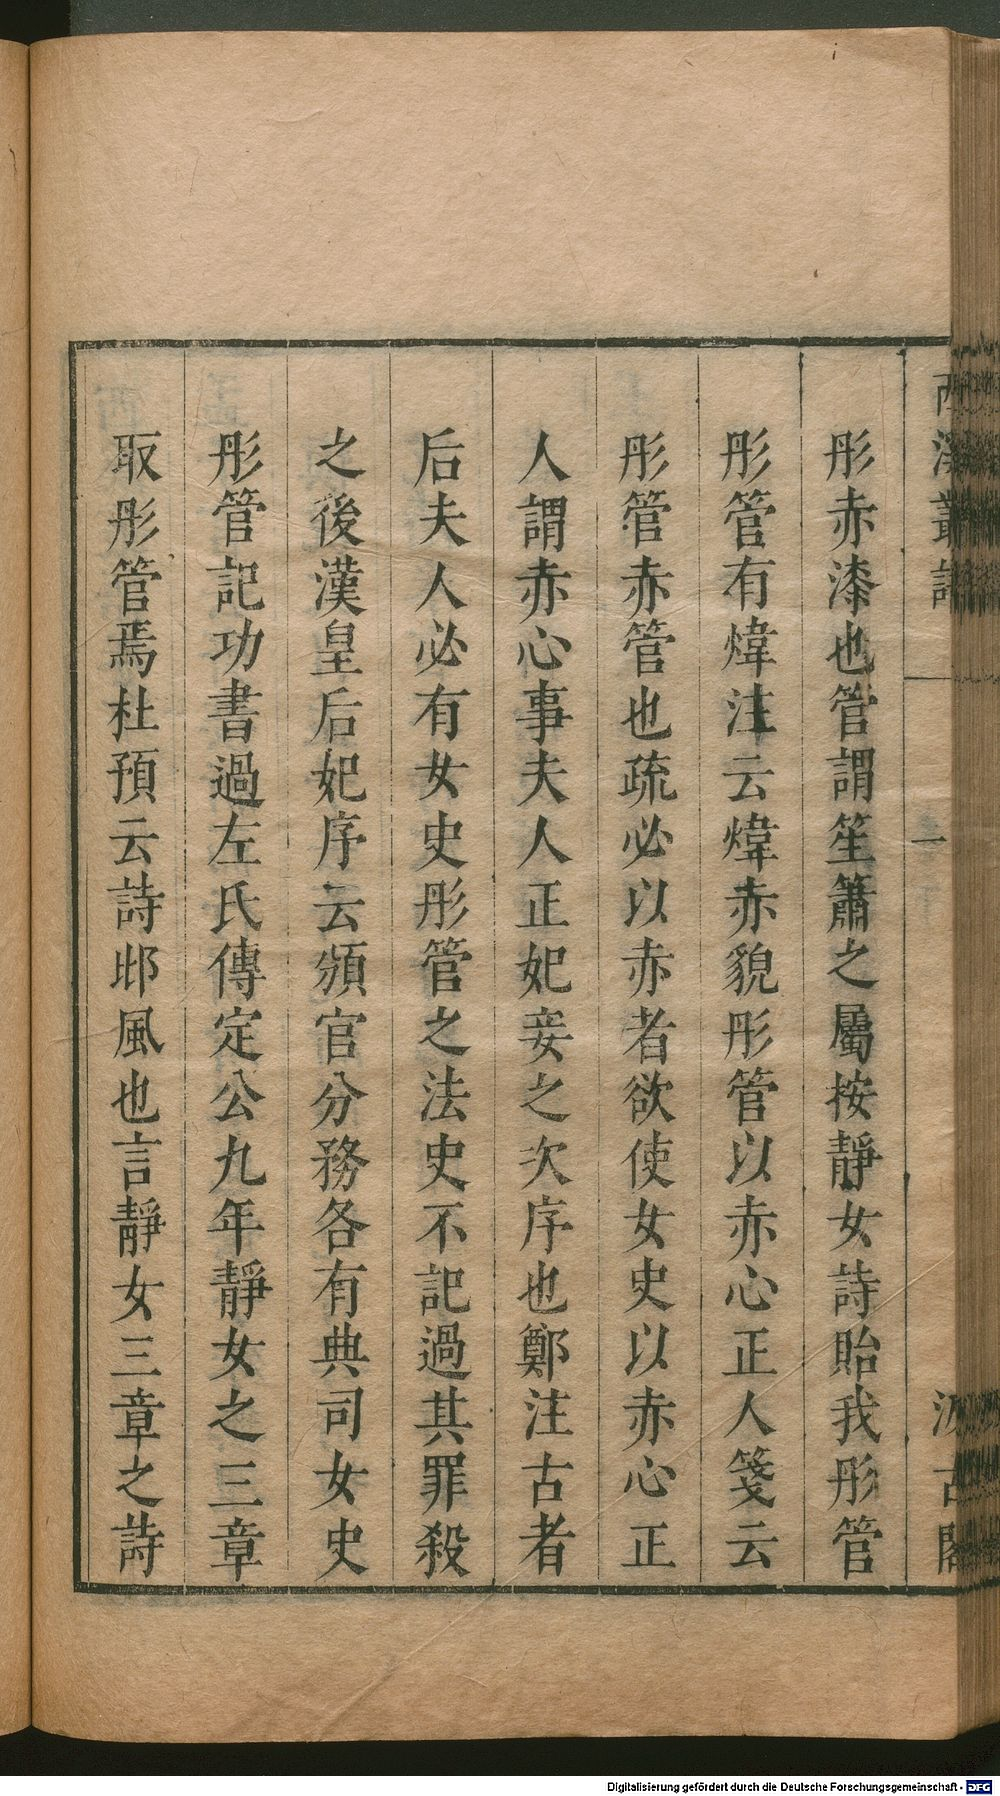 西溪叢語
一
汲古閣
彤赤漆也管謂笙簫之屬按靜女詩貽我彤管
彤管有煒注云煒赤貌彤管以赤心正人箋云
彤管赤管也疏必以赤者欲使女史以赤心正
人謂赤心事夫人正妃妾之次序也鄭注古者
后夫人必有女史彤管之法史不記過其罪殺
之後漢皇后妃序云頒官分務各有典司女史
彤管記功書過左氏傳定公九年靜女之三章
取彤管焉杜預云詩邶風也言靜女三章之詩
Digitalisierung gefördert durch die Deutsche Forschungsgemeinschaft - DFG